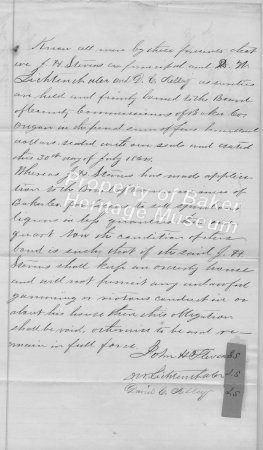 Know all men by these presents that
we J H Stevens as principal and
Lichtenthaler and D. C. Kelley as sureties
are held and firmly bound to the Board
of County Commissioners of Baker Co
Oregon in the penal sum of five hundred
dollars sealed with our seals and dated
this 30th day of July
Whereas J H Stevens has made applica-
tion to the Board of
Baker Co to sell
in less quantities than one
quart Now the condition of this
bond is such that if the said J. H.
Stevens shall keep an orderly house
and will not permit any unlawful
gaming or riotous conduct in or
about his house then this obligation
shall be void, otherwise to be and re-
main in full force.
John H Stevens LS
Lichtenthaler LS
David C. Kelley LS
Property of Baker
Heritage Museum